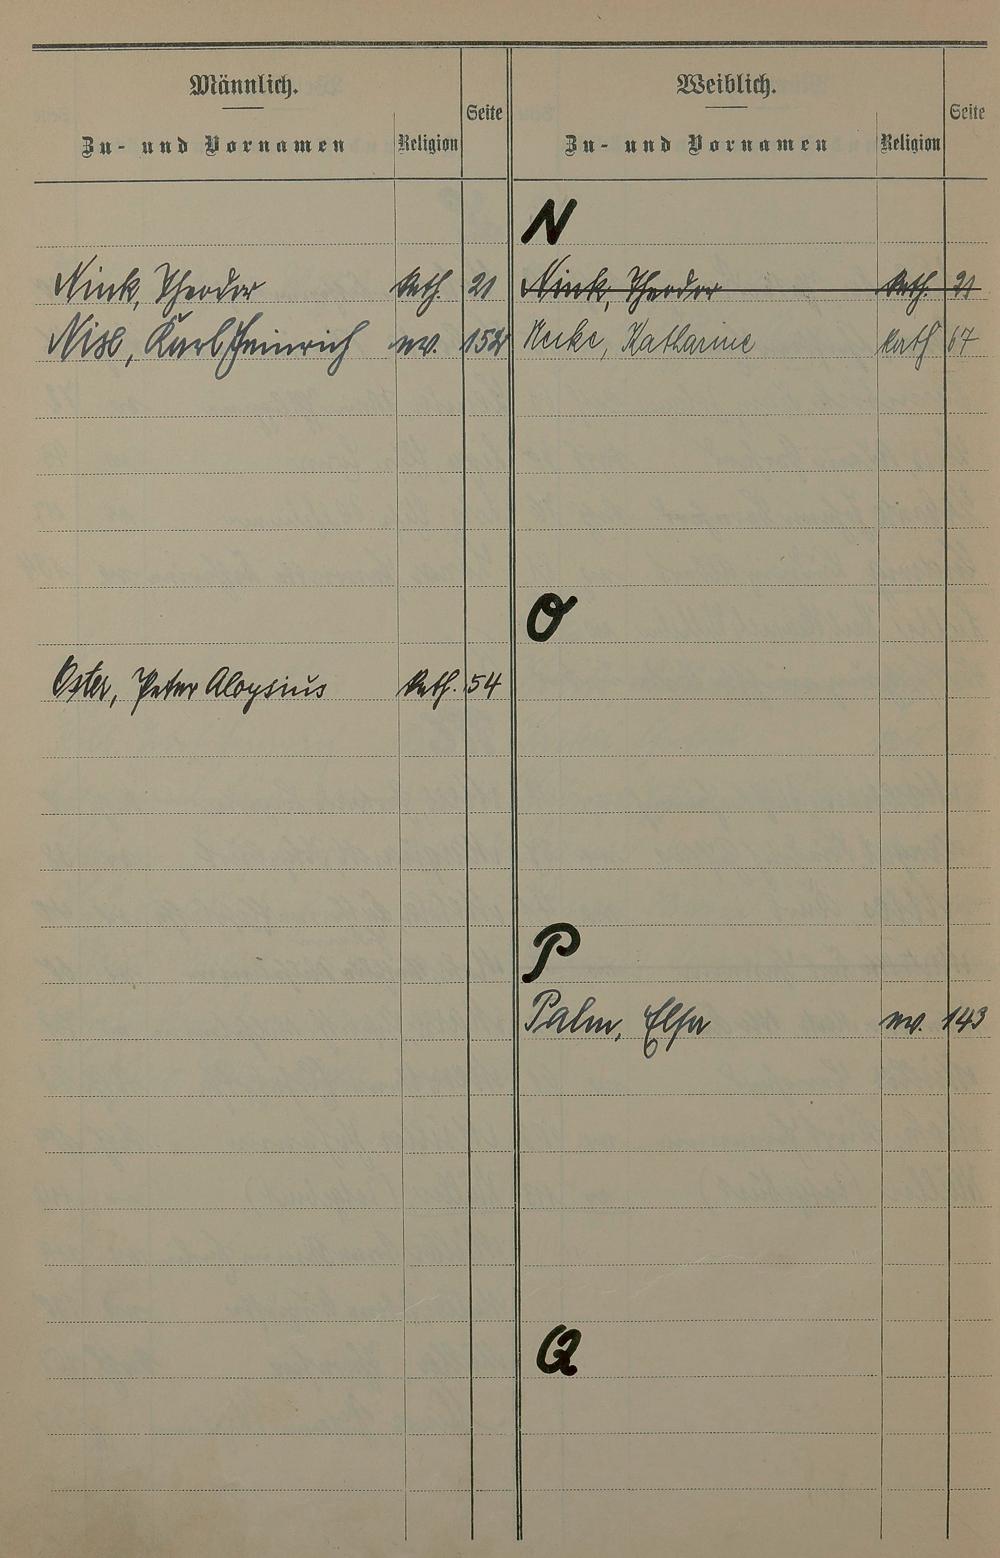 Männlich.
Zu- und Vornamen Religion Seite
Weiblich.
Zu- und Vornamen Religion Seite
N
Nink, Theodor kath. 21 Nink, Theodor kath. 21
Karl Heinrich ev. 152 Katharine kath 67
O
Oster, Peter Aloysius kath. 54
P
Palm, Elsa ev. 143
Q